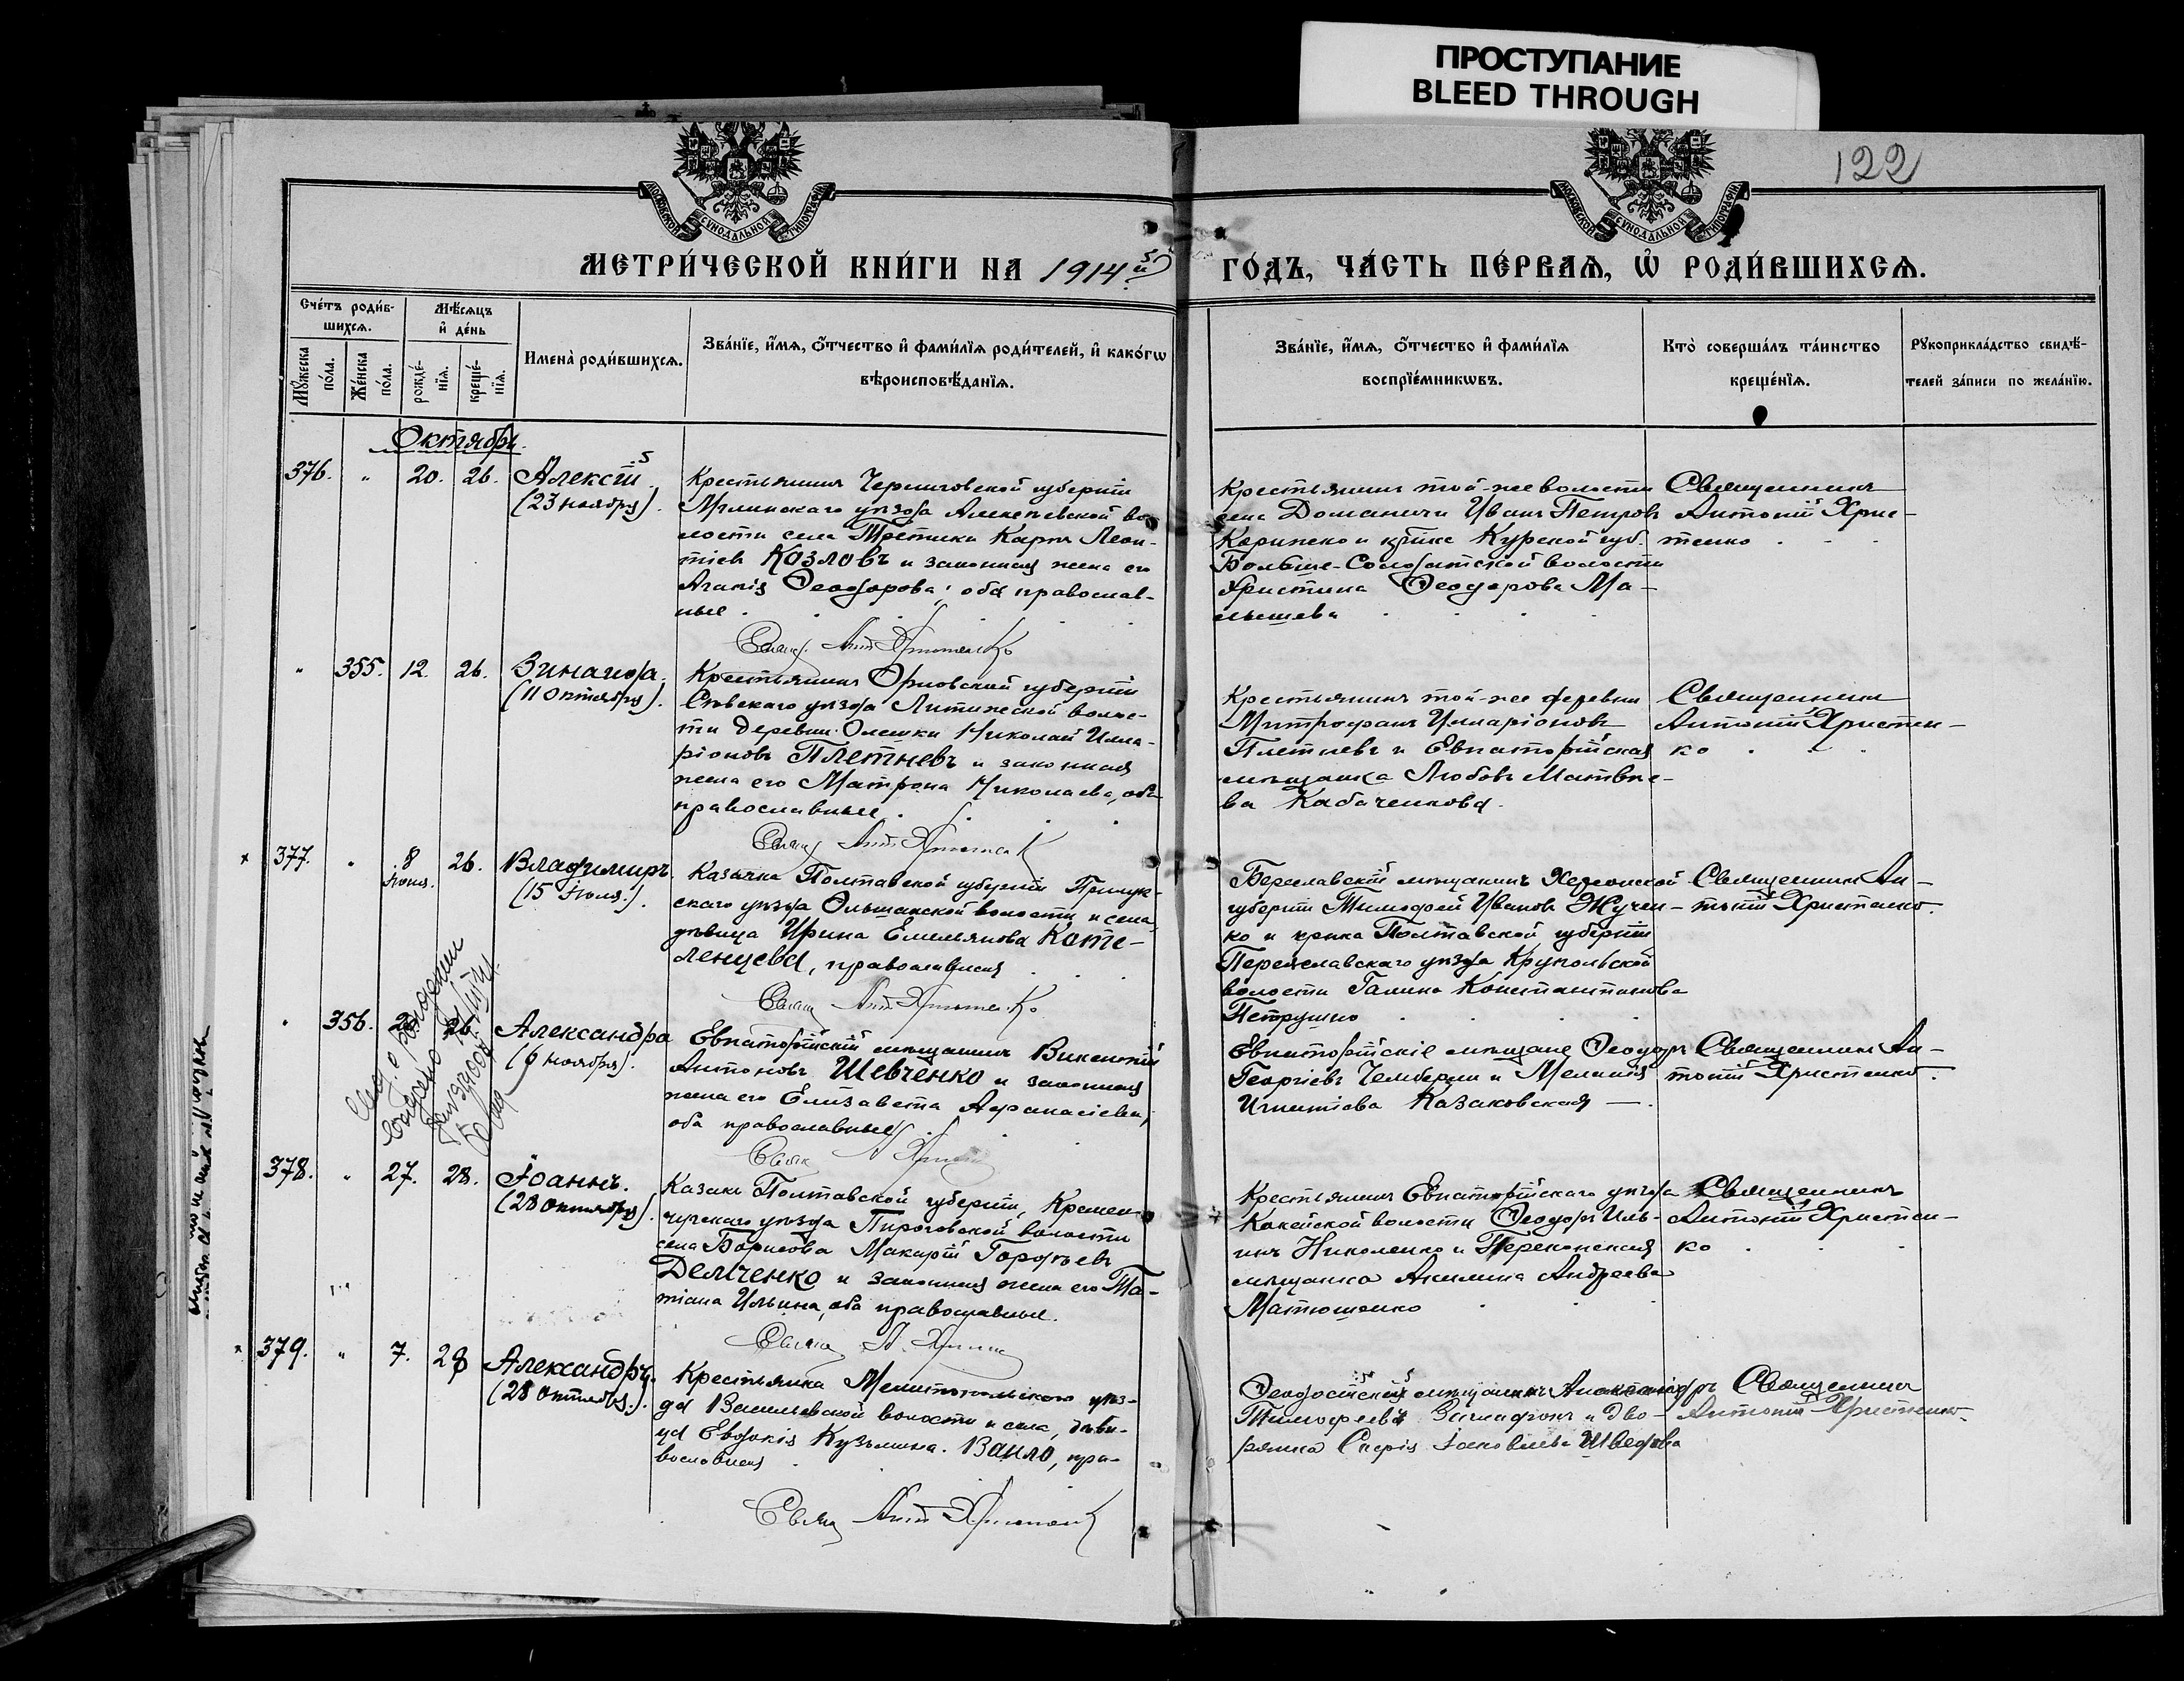 ПРОСТУПАНИЕ
BLEED THROUGH
122
МОСКОВСКОЙ СУНОДАЛЬНОЙ ТИПОГРАФІИ
МОСКОВСКОЙ СУНОДАЛЬНОЙ ТИПОГРАФІИ
МЕТРИ́ЧЕСКОЙ КНИ́ГИ НА 1914й
ГО́ДЪ, ЧА́СТЬ ПЕ́РВАѦ, Ѡ҆ РОДИ́ВШИХСѦ.
Сче́тъ роди́в-
шихсѧ.
Мꙋ́жеска по́ла.
Же́нска по́ла.
Мѣ́сѧцъ
и҆ де́нь
рожде́-
нїѧ.
креще́-
нїѧ.
Имена̀ роди́вшихсѧ.
Зва́нїе, и҆́мѧ, ѻ҆́тчество и҆ фами́лїѧ роди́телей, и҆ како́гѡ
вѣроисповѣ́данїѧ.
Зва́нїе, и҆́мѧ, ѻ҆́тчество и҆ фами́лїѧ
воспрїе́мникѡвъ.
Кто̀ соверша́лъ та́инство
креще́нїѧ.
Рꙋкоприкла́дство свидѣ́-
телей за́писи по жела́нїю.
Октябрь.
376. " 20. 26. Алексій
(23 ноября).
Крестьянинъ Черниговской губерніи
Мглинскаго уѣзда Алексѣевской во-
лости села Карпъ Леон-
тіевъ Козловъ и законная жена его
Агапія Ѳеодорова; оба православ-
ные
Крестьянинъ той-же волости
села Доманичи Иванъ Петровъ
и кр-ка Курской губ.
Больше-Солдатской волости
Христина Ѳеодорова Ма-
лышева
Священникъ
Антоній Хрис-
тенко
Свящ. Ант. Христенко
" 355. 12. 26. Зинаида.
(11 Октября).
Крестьянинъ Орловской губерніи
Сѣвскаго уѣзда Литижской волос-
ти деревни Олешки Николай Илла-
ріоновъ Плетневъ и законная
жена его Матрона Николаева, оба
православные.
Крестьянинъ той-же деревни
Митрофанъ Илларіоновъ
Плетневъ и Евпаторійская
мѣщанка Любовь Матвѣе-
ва Кабаченкова.
Священникъ
Антоній Христен-
ко
Свящ. Ант. Христенк
377. " 8 Іюля. 26. Владимиръ.
(15 Іюля.).
Казачка Полтавской губерніи Прилук-
скаго уѣзда Ольшанской волости и села,
дѣвица Ирина Емельянова Коте-
ленцева, православная
Бериславскій мѣщанинъ Херсонской
губерніи Тимофей Ивановъ Жучен-
ко и кр-ка Полтавской губерніи
Переяславскаго уѣзда Крупольской
волости Галина Константинова
Петрушко
Священникъ Ан-
тоній Христенко.
Свящ. Ант. Христенко
" 356. 20. 26. Александра
(6 ноября).
Евпаторійскій мѣщанинъ Викентій
Антоновъ Шевченко и законная
жена его Елизавета Аѳанасіева,
оба православные.
Евпаторійскіе мѣщане Ѳеодоръ
Георгіевъ Чембержи и Меланія
Игнатіева Казаковская —.
Священникъ Ан-
тоній Христенко.
378. " 27. 28. Іоаннъ.
(28 Октября).
Казакъ Полтавской губерніи, Кремен-
чугскаго уѣзда Пироговской волости
села Борисова Макарій Гордѣевъ
Демченко и законная жена его Та-
тіана Ильина, оба православные.
Крестьянинъ Евпаторійскаго уѣзда
волости Ѳеодоръ Иль-
инъ Николенко и Перекопская
мѣщанка Акилина Андреева
Матюшенко
Священникъ
Антоній Христен-
ко
379. " 7. 28 Александръ.
(28 Октября.).
Крестьянка Мелитопольскаго уѣз-
да Васильевской волости и села, дѣви-
ца Евдокія Кузьмина Вакло, пра-
вославная
Ѳеодосійскій мѣщанинъ Александръ
Тимофеевъ и дво-
рянка Іаковлева Шведова
Священникъ
Антоній Христенко.
Свящ Ант Христенк